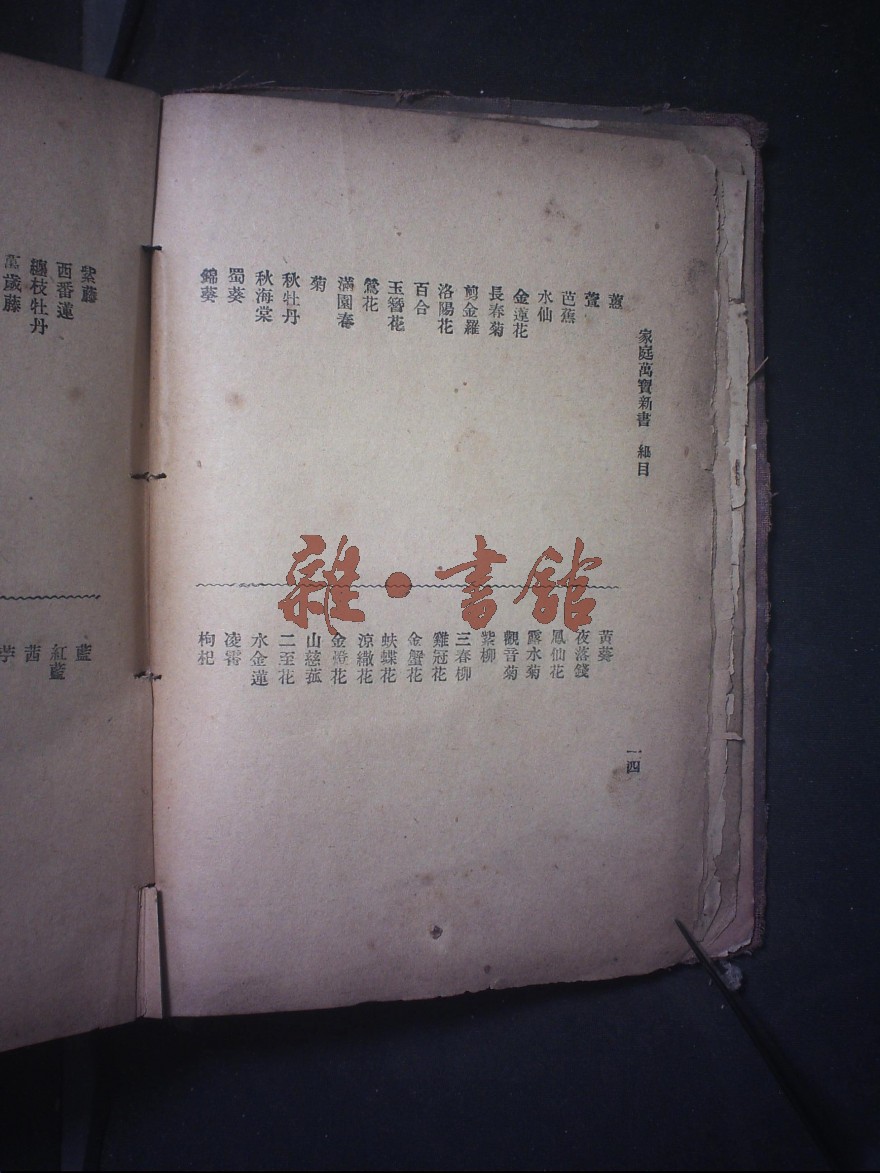 家庭萬寶新書 細目
一四
蕙
萱
芭蕉
水仙
金蓮花
長春菊
剪金羅
洛陽花
百合
玉簪花
鶯花
滿園春
菊
秋牡丹
秋海棠
蜀葵
錦葵
黃葵
夜落錢
鳳仙花
滴水菊
觀音菊
紫柳
三春柳
雞冠花
金蟹花
蛺蝶花
涼繖花
金燈花
山慈菰
二至花
水金蓮
凌霄
枸杞
紫藤
西番蓮
纏枝牡丹
萬歲藤
藍
紅藍
茜
苧
雜·書館